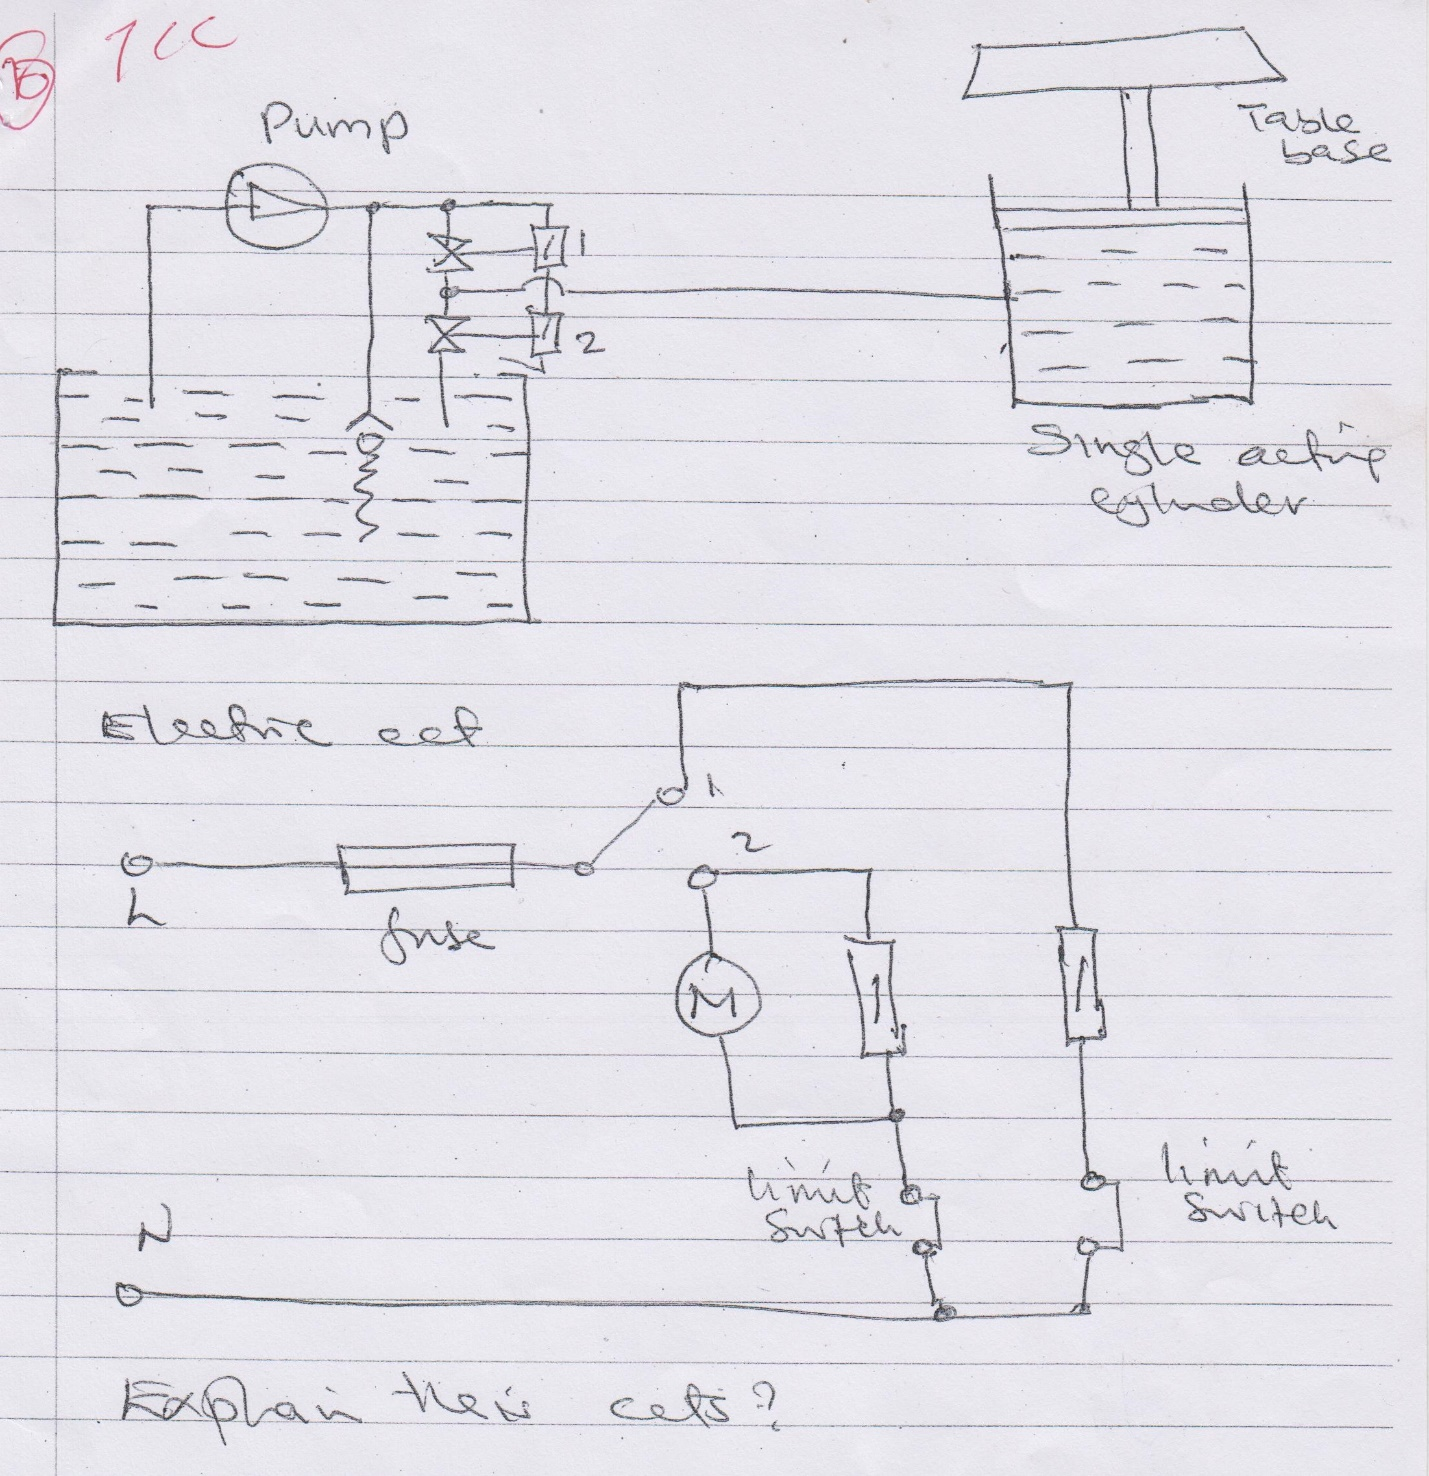 B 1cc
Pump
Table
base
1
2
Single acting
cylinder
Electric cct
1
2
L
fuse
M
limit
switch
limit
switch
N
Explain their ccts?